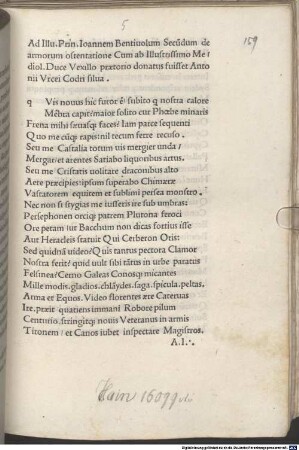 5
159
Ad Illu. Prin. Ioannem Bentiuolum Secūdum de
armorum ostentatione Cum ab Illustrissimo Me
diol. Duce Vexillo prætorio donatus fuisset Anto
nii Vrcei Codri silua.
q Vis nouus hic furor ē/ subito q nostra calore
Mēbra capit/ maior solito cur Phœbe minaris
Frena mihi/ sæuasq; faces/ Iam parce sequenti
Quo me cūq; rapis: nil tecum ferre recuso.
Seu me Castalia totum uis mergier unda/
Mergar/ et arentes Satiabo liquoribus artus.
Seu me Cristatis uolitare draconibus alto
Aere præcipies: ipsum superabo Chimæræ
Vastatorem equitem et sublimi persea monstro.
Nec non si stygias me iusseris ire sub umbras:
Persephonen orciq; patrem Plutona feroci
Ore petam/ ut Bacchum non dicas fortius isse
Aut Heracleis statuit Qui Cerberon Otis:
Sed quidnā uideo? Quis tantus pectora Clamor
Nostra ferit? quid uult sibi tātus in urbe paratus
Felsinea? Cerno Galeas Conosq; micantes
Mille modis. gladios. chlāydes. saga. spicula. peltas.
Arma et Equos. Video florentes ære Cateruas
Ire. præit quatiens immani Robore pilum
Centurio. stringitq; nouis Veteranus in armis
Titonem/ et Canos iubet inspectare Magistros.
A.I.
Hain 16099